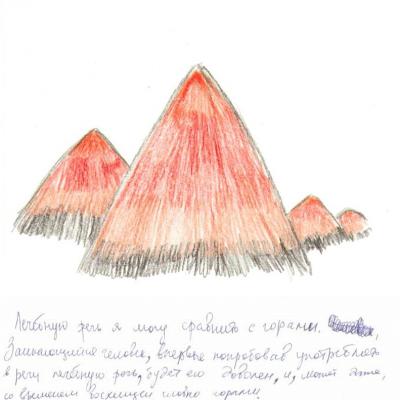 Лечебную речь я могу сравнить с горами.
Заикающийся человек, впервые попробовав употреблять
в речи лечебную речь, будет ею доволен, и, может даже,
со временем восхищен словно горами